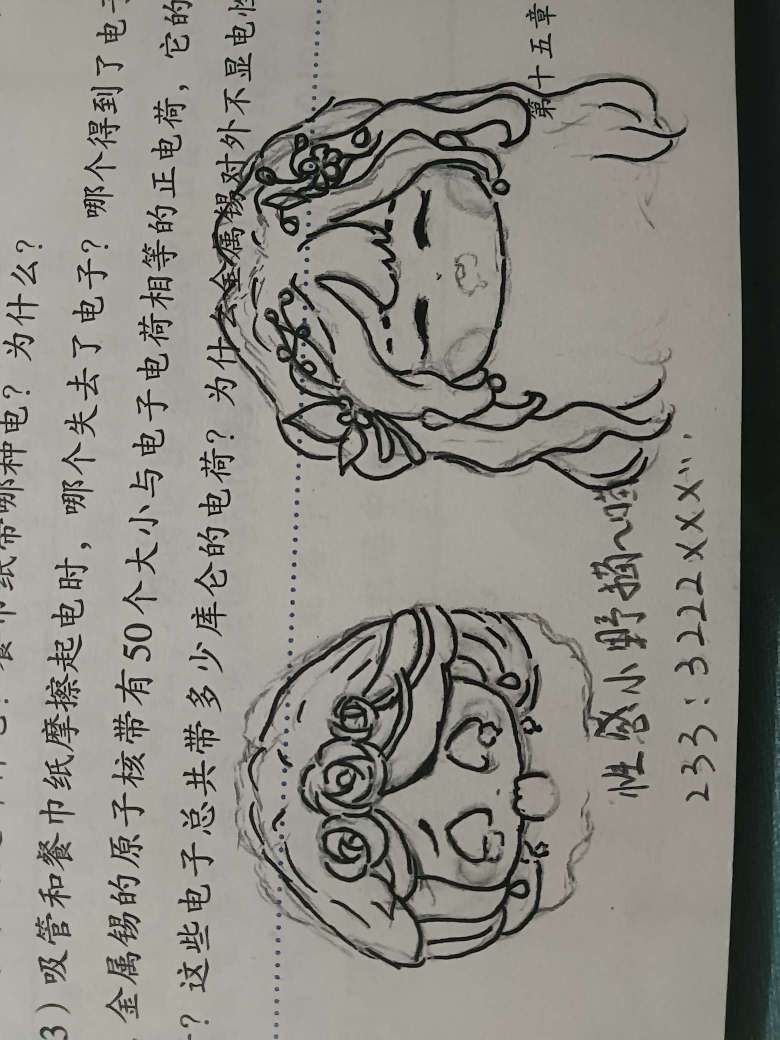 纸带哪种电？为什么？
3）吸管和餐巾纸摩擦起电时，哪个失去了电子？哪个得到了电子
金属锡的原子核带有50个大小与电子电荷相等的正电荷，它的
？这些电子总共带多少库仑的电荷？为什么金属锡对外不显电性
第十五章
性感小野猫~喵
233:3222xxx